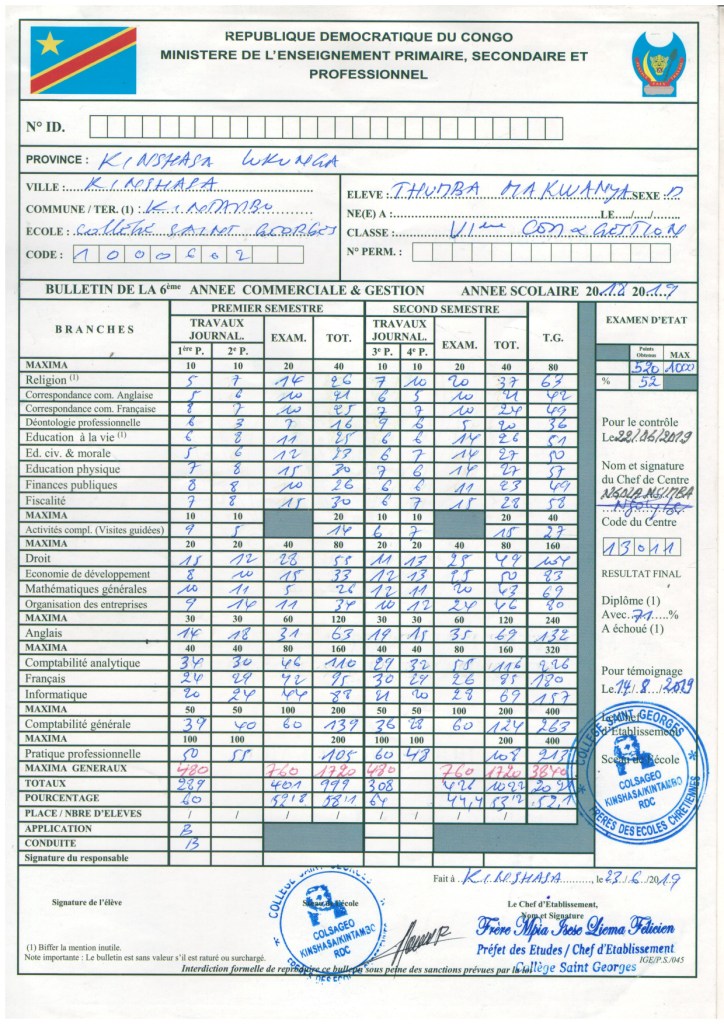 REPUBLIQUE DEMOCRATIQUE DU CONGO
MINISTERE DE L'ENSEIGNEMENT PRIMAIRE, SECONDAIRE ET
PROFESSIONNEL
N° ID.
PROVINCE : KINSHASA LUKUNGA
VILLE : KINSHASA
COMMUNE / TER. (1) : KINTAMBO
ÉCOLE : COLLÈGE SAINT GEORGES
CODE : 1 0 0 0 6 0 2
ELEVE : THUMBA MAKWANYA SEXE : M
NE(E) A : LE..../...../.......
CLASSE : VIème COM & GESTION
N° PERM. :
BULLETIN DE LA 6ème ANNEE COMMERCIALE & GESTION ANNEE SCOLAIRE 2018 2019
BRANCHES PREMIER SEMESTRE SECOND SEMESTRE T.G. EXAMEN D'ETAT
TRAVAUX JOURNAL. EXAM. TOT. TRAVAUX JOURNAL. EXAM. TOT.
1ère P. 2e P. 3e P. 4e P. Points Obtenus MAX
MAXIMA 10 10 20 40 10 10 20 40 80 520 1000
Religion (1) 5 7 14 26 7 10 20 37 63 % 52
Correspondance com. Anglaise 5 6 10 21 6 5 10 21 42
Correspondance com. Française 8 7 10 25 7 7 10 24 49
Déontologie professionnelle 6 3 7 16 9 6 5 20 36
Education à la vie (1) 6 8 11 25 6 6 14 26 51
Ed. civ. & morale 5 6 12 23 6 7 14 27 50
Education physique 7 8 15 30 7 6 14 27 57
Finances publiques 8 8 10 26 6 6 11 23 49
Fiscalité 7 8 15 30 6 7 15 28 58
MAXIMA 10 10 20 10 10 20 40
Activités compl. (Visites guidées) 9 5 14 6 7 15 27
MAXIMA 20 20 40 80 20 20 40 80 160
Droit 15 12 28 55 11 13 25 49 104
Economie de développement 8 10 15 33 12 13 25 50 83
Mathématiques générales 10 11 5 26 12 11 20 43 69
Organisation des entreprises 9 14 11 34 10 12 24 46 80
MAXIMA 30 30 60 120 30 30 60 120 240
Anglais 14 18 31 63 19 15 35 69 132
MAXIMA 40 40 80 160 40 40 80 160 320
Comptabilité analytique 34 30 46 110 29 32 55 116 226
Français 24 29 42 95 30 29 26 85 180
Informatique 20 24 44 88 21 20 28 69 157
MAXIMA 50 50 100 200 50 50 100 200 400
Comptabilité générale 39 40 60 139 36 28 60 124 263
MAXIMA 100 100 200 100 100 200 400
Pratique professionnelle 50 55 105 60 48 108 213
MAXIMA GENERAUX 480 760 1720 480 760 1720 3840
TOTAUX 289 401 999 308
POURCENTAGE 60 52,8 58,1 64
PLACE / NBRE D'ELEVES / / / / / / / / /
APPLICATION B
CONDUITE B
Signature du responsable
Pour le contrôle
Le 22/06/2019
Nom et signature
du Chef de Centre
Code du Centre
13011
RESULTAT FINAL
Diplôme (1)
Avec 71 %
A échoué (1)
Pour témoignage
Le 14/8/2019
d'Etablissement
COLLEGE SAINT GEORGES
COLSAGEO
KINSHASA/KINTAMBO
RDC
FRERES DES ECOLES CHRETIENNES
Fait à KINSHASA, le 23/6/2019
Signature de l'élève
Sceau de l'école
Le Chef d'Établissement,
Nom et Signature
COLLEGE SAINT GEORGES
COLSAGEO
KINSHASA/KINTAMBO
RDC
Frère Mpia Isese Liema Félicien
Préfet des Etudes / Chef d'Etablissement
Collège Saint Georges
(1) Biffer la mention inutile.
Note importante : Le bulletin est sans valeur s'il est raturé ou surchargé.
IGE/P.S./045
Interdiction formelle de reproduire ce bulletin sous peine des sanctions prévues par la loi